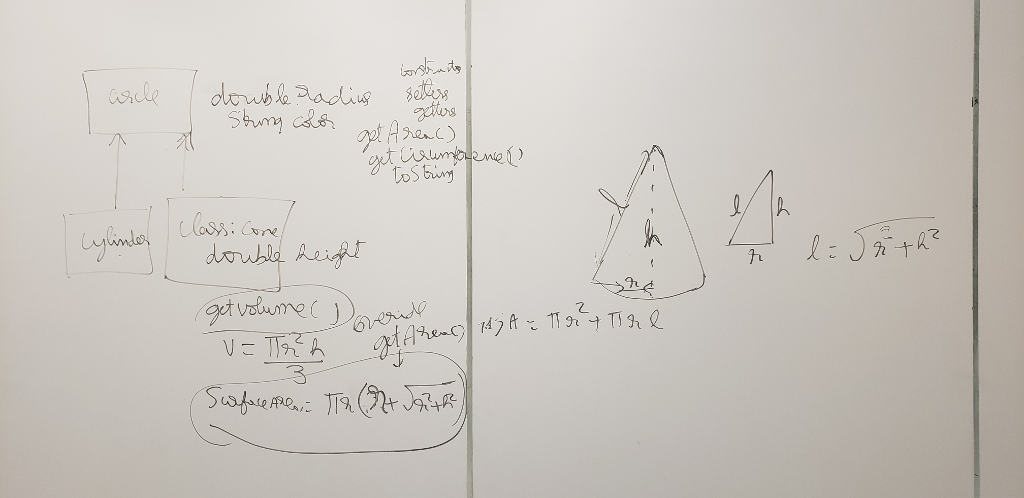 circle
double radius
String color
constructo
setters
getters
getArea()
getCirumference()
toString
cylinder
class: cone
double height
getvolume()
V = πr²h
3
override
getArea()
A = πr² + πrl
Surface Area = πr(r + √r²+h²
l
h
r
l
h
r
l = √r² + h²